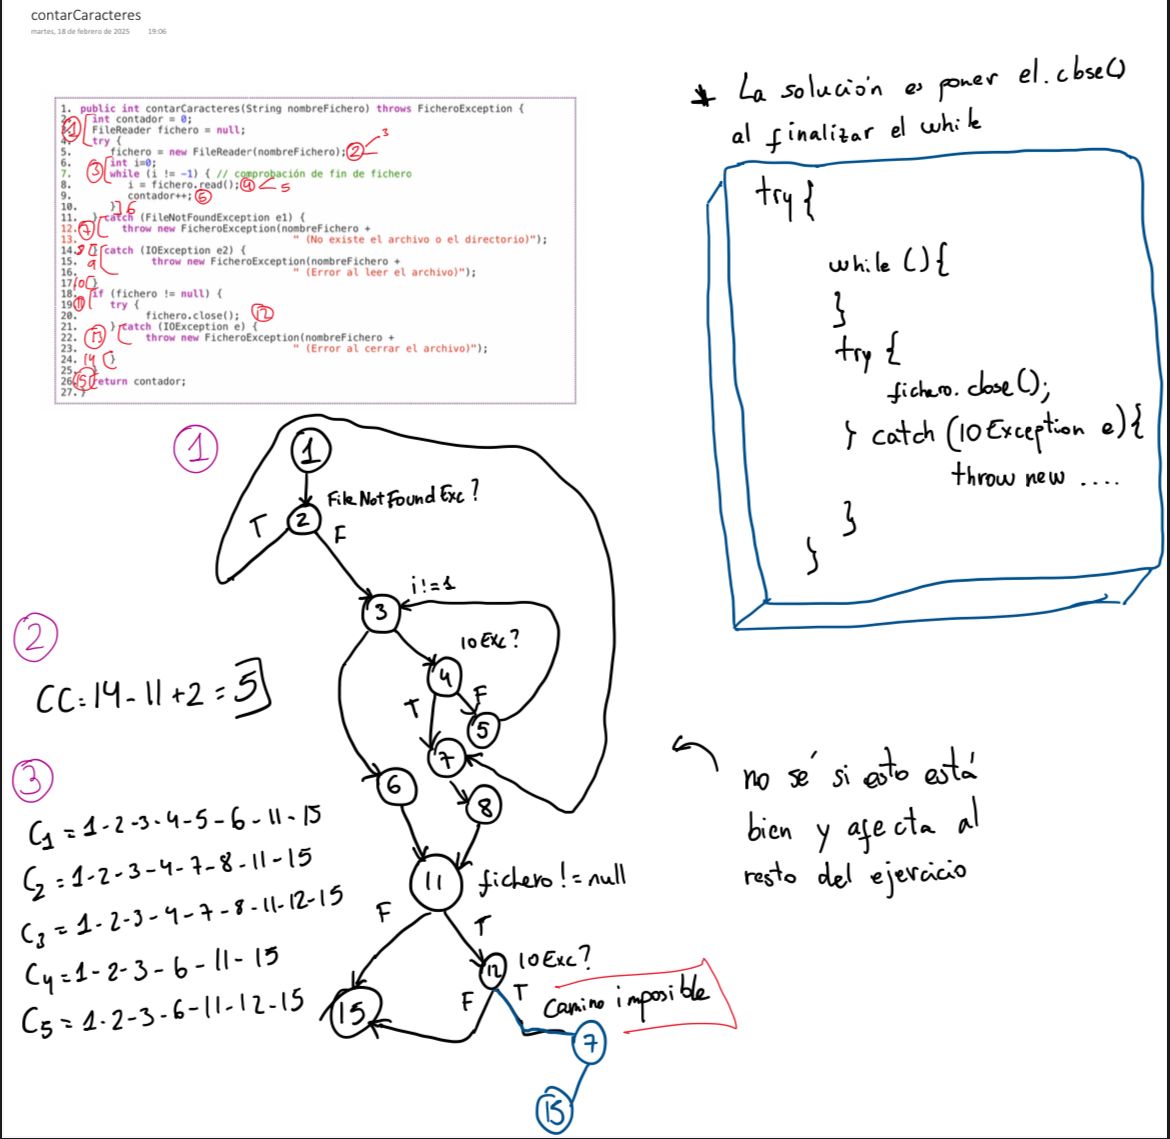 contarCaracteres
martes, 18 de febrero de 2025 19:06
1. public int contarCaracteres(String nombreFichero) throws FicheroException {
2. int contador = 0;
3. FileReader fichero = null;
4. try {
5. fichero = new FileReader(nombreFichero);
6. int i=0;
7. while (i != -1) { // comprobación de fin de fichero
8. i = fichero.read();
9. contador++;
10. }
11. } catch (FileNotFoundException e1) {
12. throw new FicheroException(nombreFichero +
13. " (No existe el archivo o el directorio)");
14. } catch (IOException e2) {
15. throw new FicheroException(nombreFichero +
16. " (Error al leer el archivo)");
17. }
18. if (fichero != null) {
19. try {
20. fichero.close();
21. } catch (IOException e) {
22. throw new FicheroException(nombreFichero +
23. " (Error al cerrar el archivo)");
24. }
25. }
26. return contador;
27. }
1
2
3
3
4
5
5
6
7
8
9
10
11
12
13
14
15
* La solución es poner el .close()
al finalizar el while
try {
while () {
}
try {
fichero.close();
} catch (IOException e) {
throw new ....
}
}
1
1
2 FileNotFoundExc?
T F
3 i!=1
4 IOExc?
T F
5
7
6
8
11 fichero != null
F T
12 IOExc?
F T Camino imposible
15
7
15
2
CC = 14 - 11 + 2 = 5
3
C1 = 1-2-3-4-5-6-11-15
C2 = 1-2-3-4-7-8-11-15
C3 = 1-2-3-4-7-8-11-12-15
C4 = 1-2-3-6-11-15
C5 = 1-2-3-6-11-12-15
no sé si esto está
bien y afecta al
resto del ejercicio